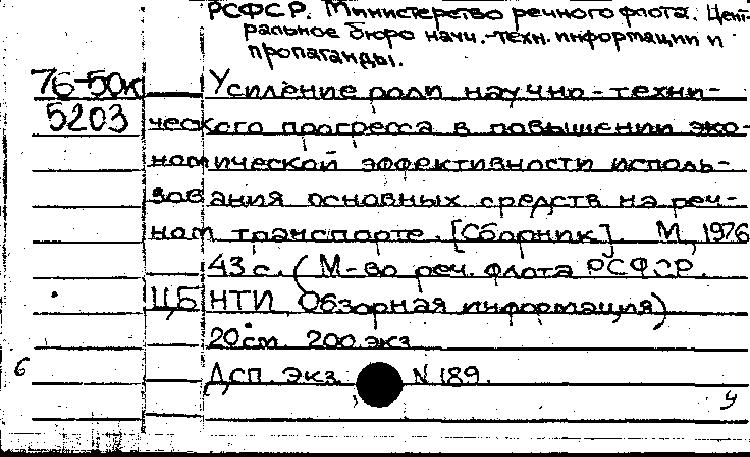 РСФСР. Министерство речного флота. Цент-
ральное бюро научн.-техн. информации и
пропаганды.
76-50к Усиление роли научно-техни-
5203 ческого прогресса в повышении эко-
номической эффективности исполь-
зования основных средств на реч-
ном транспорте. [Сборник]. М, 1976
43 с. (М-во реч. флота РСФСР.
ЦБНТИ Обзорная информация)
20см. 200.экз
6 Дсп. Экз. N 189.
у